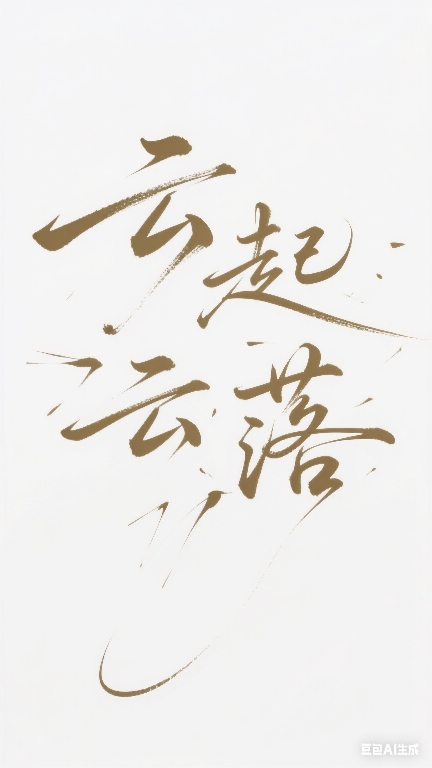 云起
云落
豆包AI生成